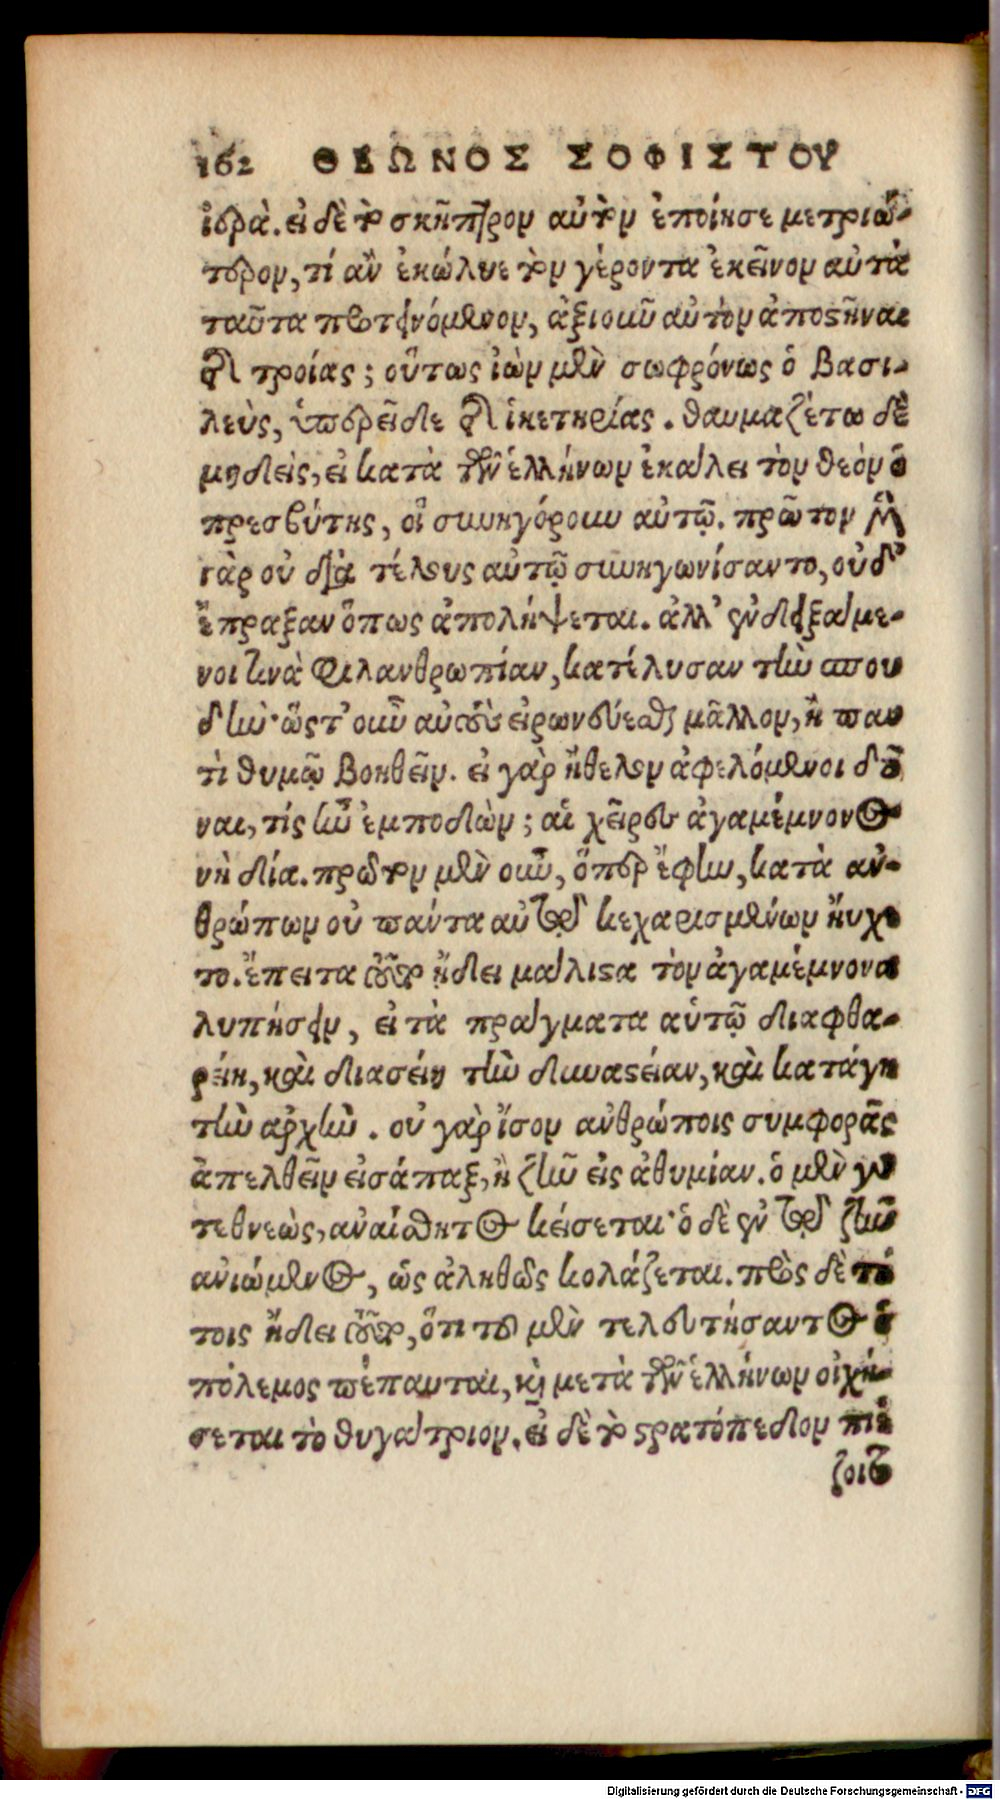 162 ΘΕΩΝΟΣ ΣΟΦΙΣΤΟΥ
ἱερὰ. εἰ δὲ τὸ σκῆπτρον αὐτὸν ἐποίησε μετριώ-
τερον, τί ἂν ἐκώλυε τὸν γέροντα ἐκεῖνον αὐτὰ
ταῦτα προτεινόμενον, ἀξιοῦν αὐτὸν ἀποστῆναι
τῆς τροίας; οὕτως ἰὼν μὲν σωφρόνως ὁ βασι-
λεὺς, ὑπερεῖδε τῆς ἱκετηρίας. θαυμαζέτω δὲ
μηδεὶς, εἰ κατὰ τῶν ἑλλήνων ἐκάλει τὸν θεὸν ὁ
πρεσβύτης, οἳ συνηγόρουν αὐτῷ. πρῶτον μὲν
γὰρ οὐ διὰ τέλους αὐτῷ συνηγωνίσαντο, οὐδ'
ἔπραξαν ὅπως ἀπολήψεται. ἀλλ' ἐνδειξάμε-
νοι τινὰ φιλανθρωπίαν, κατέλυσαν τὴν σπου
δήν· ὥστ' οὖν αὐτοὺς εἰρωνεύεσθαι μᾶλλον, ἢ παν
τὶ θυμῷ βοηθεῖν. εἰ γὰρ ἤθελον ἀφελόμενοι δοῦ
ναι, τίς ἦν ἐμποδὼν; αἱ χεῖρες ἀγαμέμνονος
νὴ δία. πρῶτον μὲν οὖν, ὅπερ ἔφην, κατὰ ἀν-
θρώπων οὐ πάντα αὐτῷ κεχαρισμένων ηὔχε
το. ἔπειτα τοῦτο ᾔδει μάλιστα τὸν ἀγαμέμνονα
λυπήσειν, εἰ τὰ πράγματα αὑτῷ διαφθα-
ρείη, καὶ διασείη τὴν δυναστείαν, καὶ κατάγη
τὴν ἀρχήν. οὐ γὰρ ἴσον ἀνθρώποις συμφορᾶς
ἀπελθεῖν εἰσάπαξ, ἢ ζῆν εἰς ἀθυμίαν. ὁ μὲν γὰρ
τεθνεὼς, ἀναίσθητος κείσεται· ὁ δὲ ἐν τῷ ζῆν
ἀνιώμενος, ὡς ἀληθῶς κολάζεται. πρὸς δὲ τού
τοις ᾔδει τοῦτο, ὅτι τοῦ μὲν τελευτήσαντος ὁ
πόλεμος πέπαυται, καὶ μετὰ τῶν ἑλλήνων οἰχή-
σεται τὸ θυγάτριον. εἰ δὲ τὸ στρατόπεδον πιέ
ζοιτο
Digitalisierung gefördert durch die Deutsche Forschungsgemeinschaft - DFG